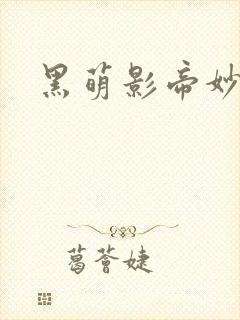 黑萌影帝妙
葛薈婕